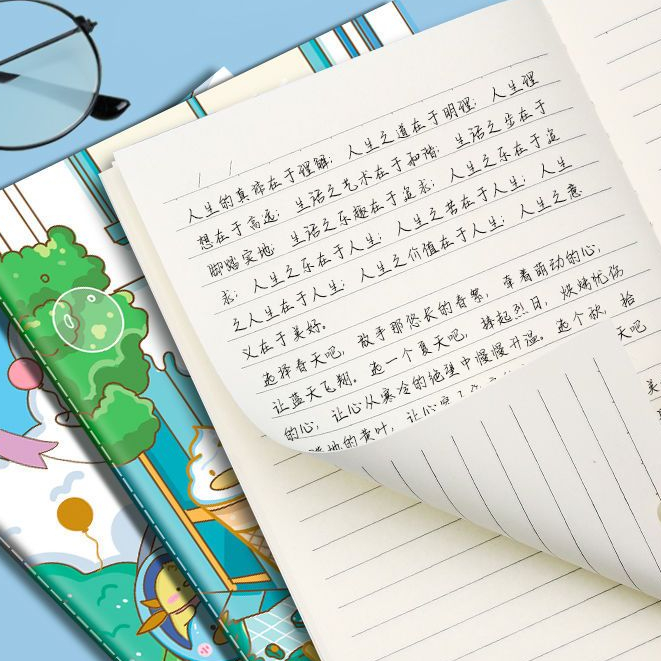 人生的真谛在于理解；人生之道在于明理；人生理
想在于高远；生活之艺术在于和谐；生活之步在于
脚踏实地；生活之乐趣在于追求；人生之乐在于追
求；人生之乐在于人生；人生之苦在于人生；人生
之人生在于人生；人生之价值在于人生；人生之意
义在于美好。
选择春天吧，敞手那悠长的春絮，牵着萌动的心，
让蓝天飞翔。选一个夏天吧，捧起烈日，烘烤忧伤
的心，让心从寒冷的绝望中慢慢升温。选个秋，拾
地的黄叶，让心
天吧